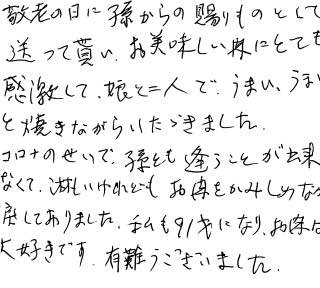 敬老の日に孫からの賜りものとして
送って貰い、お美味しい味にとても
感激して、娘と二人で、うまい、うまい
と焼きながらいただきました。
コロナのせいで、孫とも逢うことが出来
なくて、淋しいけれども お肉をかみしめなが
戻しておりました。私も91才になり、お肉は
大好きです。有難うございました。